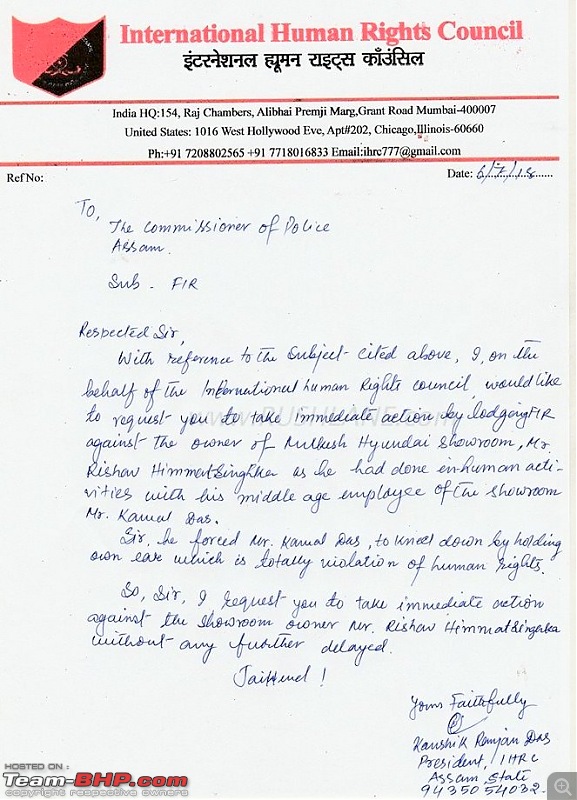 International Human Rights Council
इंटरनेशनल ह्यूमन राइट्स काँउंसिल
India HQ:154, Raj Chambers, Alibhai Premji Marg,Grant Road Mumbai-400007
United States: 1016 West Hollywood Eve, Apt#202, Chicago,Illinois-60660
Ph:+91 7208802565 +91 7718016833 Email:ihrc777@gmail.com
Ref No: Date: 6/7/18
To,
The Commissioner of Police
Assam.
Sub - FIR
Respected Sir,
With reference to the Subject Cited above, I, on the
behalf of the International human Rights council would like
to request you to take immediate action by lodging FIR
against the owner of Hyundai Showroom, Mr
Rishav HimmatSinghka as he had done in-human acti-
vities with his middle age employee of the showroom
Mr. Kamal Das.
Sir, he forced Mr. Kamal Das, to kneel down by holding
own ear which is totally violation of human rights.
So, Sir, I request you to take immediate action
against the showroom owner Mr. Rishav HimmatSinghka
without any further delayed.
JaiHind !
Yours Faithfully
Kaushik Ranjan Das
President, IHRC
Assam State
9435054032.
HOSTED ON :
Team-BHP.com
copyright respective owners